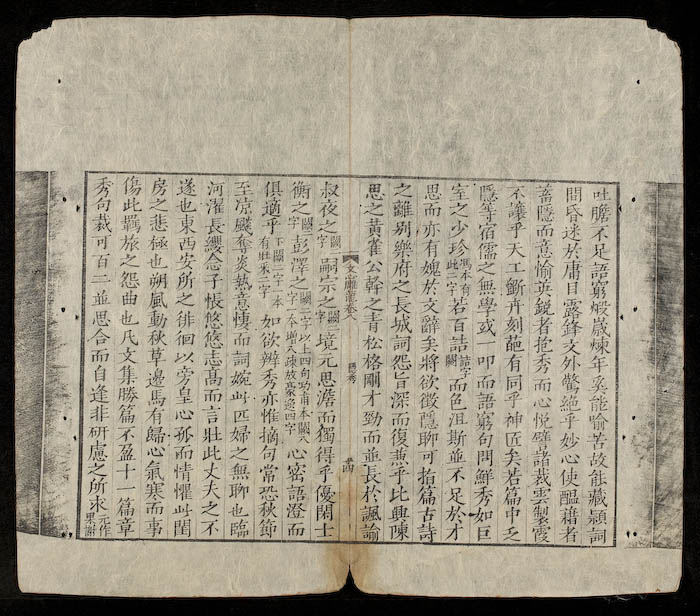 吐膽不足語窮煆歲煉年奚能喻苦故能藏潁詞
間昏迷於庸目露鋒文外驚絶乎妙心使醖藉者
蓄隱而意愉英銳者抱秀而心悅譬諸裁雲製霞
不讓乎天工斵卉刻葩有同乎神匠矣若篇中乏
隱等宿儒之無學或一叩而語窮句間鮮秀如巨
室之少珍馮本有此二字若百詰詰字闕而色沮斯並不足於才
思而亦有媿於文辭矣將欲徵隱聊可指篇古詩
之離別樂府之長城詞怨旨深而復兼乎比興陳
思之黃雀公幹之青松格剛才勁而並長於諷諭
文心雕龍卷八 隱秀 廿四
叔夜之闕二字嗣宗之闕二字境元思澹而獨得乎優閑士
衡之闕二字彭澤之闕二字以上四句功甫本闕八字一本增入疎放豪逸四字心密語澄而
俱適乎下闕二字一本有壯采二字如欲辨秀亦惟摘句常恐秋節
至凉飇奪炎熱意悽而詞婉此匹婦之無聊也臨
河濯長纓念子悵悠悠志高而言壯此丈夫之不
遂也東西安所之徘徊以旁皇心孤而情懼此閨
房之悲極也朔風動秋草邊馬有歸心氣寒而事
傷此羈旅之怨曲也凡文集勝篇不盈十一篇章
秀句裁可百二並思合而自逢非研慮之所求元作果謝